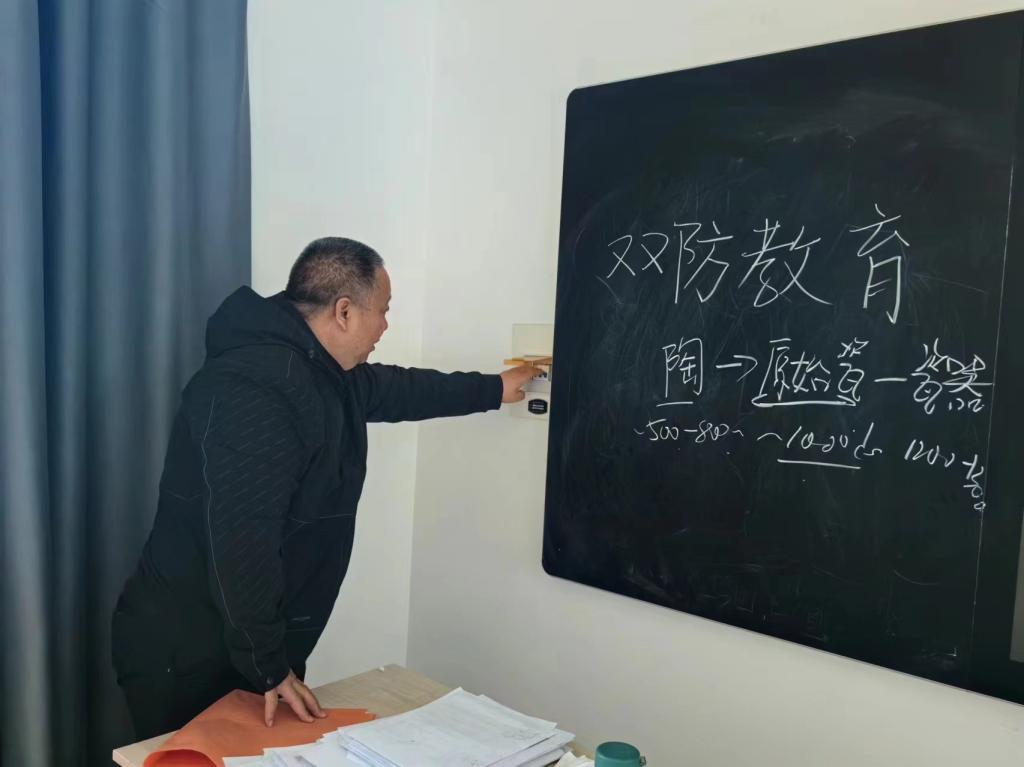 双防教育
陶→原始瓷—瓷器
~500-800~ ~1000度 1200-1300